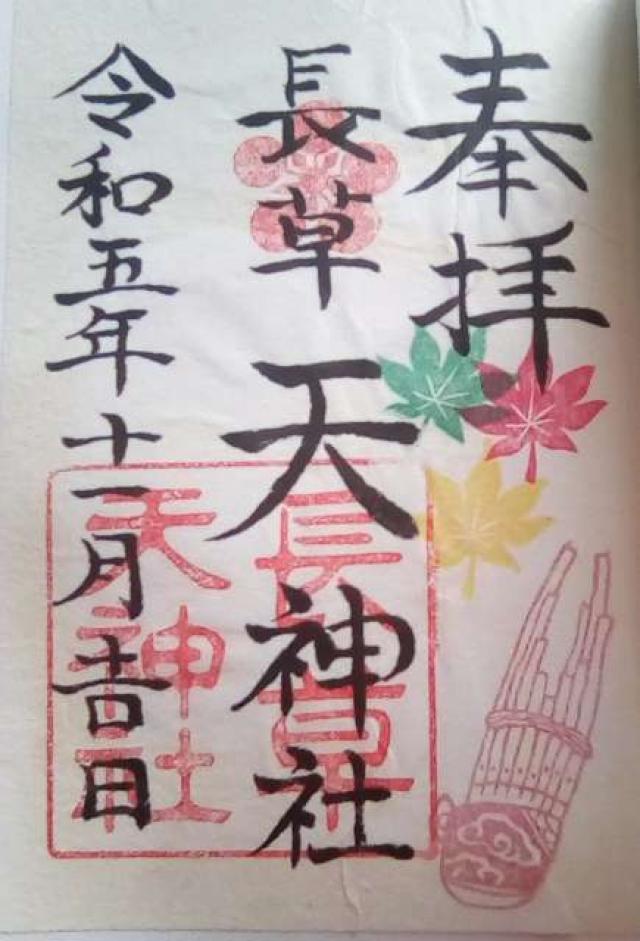 奉拝
長草天神社
長草天神社
令和五年十一月吉日